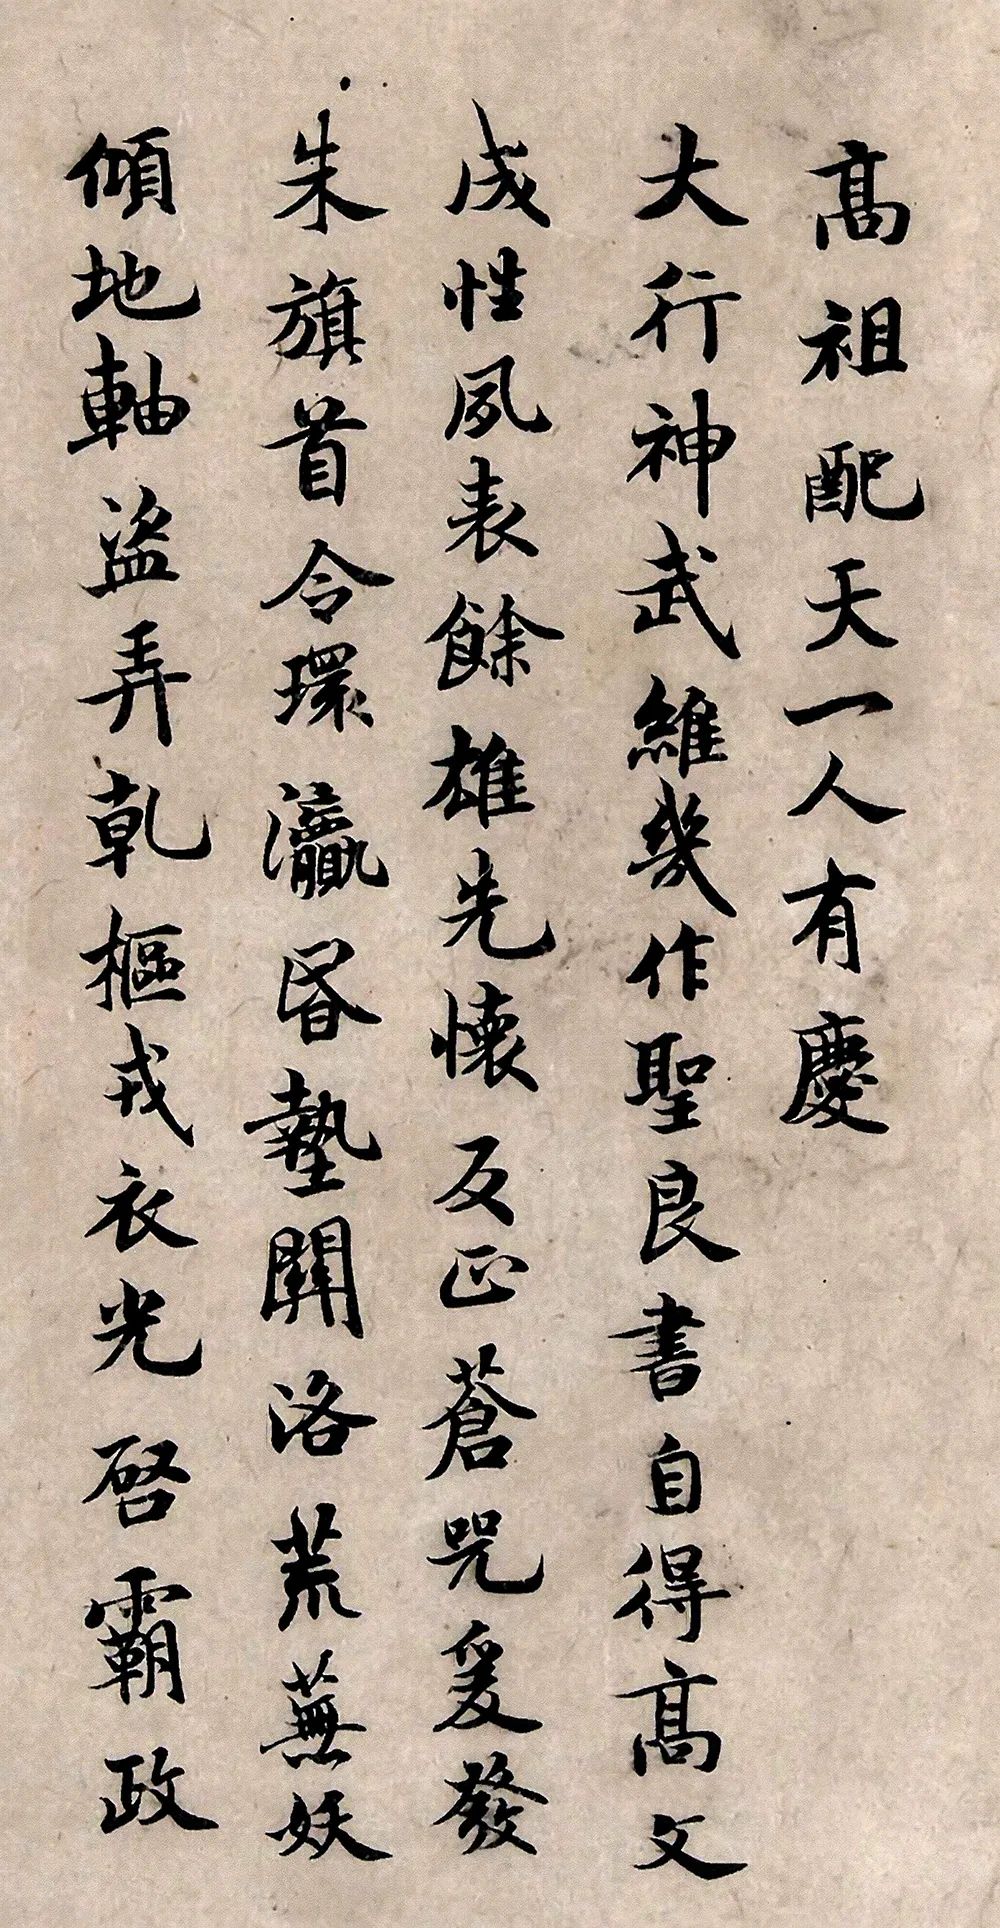 髙祖配天一人有慶
大行神武維幾作聖良書自得髙文
成性夙表餘雄先懷反正蒼兕爰發
朱旗首令環瀛昏墊關洛荒蕪妖
傾地軸盜弄乾樞戎衣光啓霸政